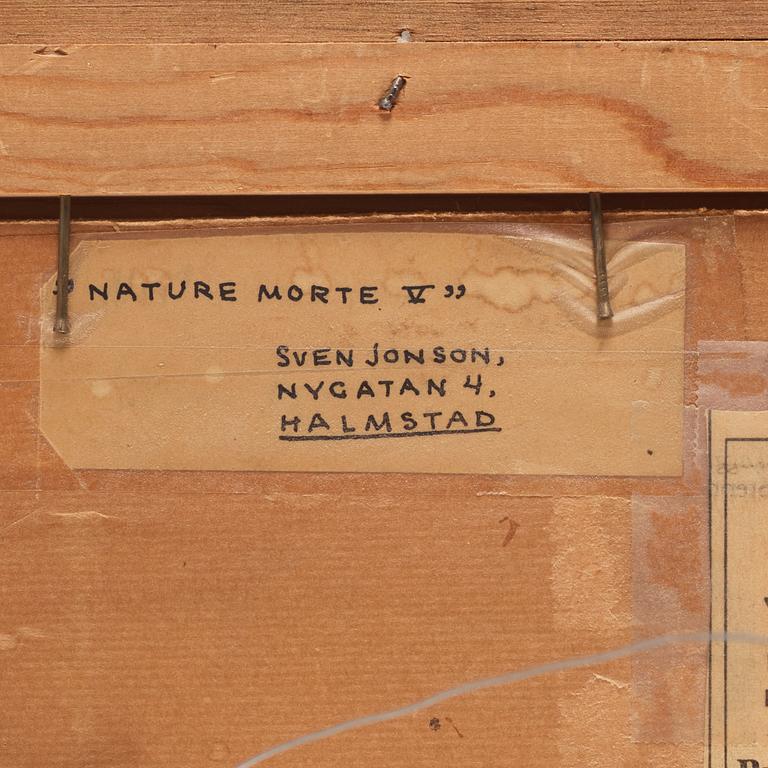 ”NATURE MORTE V”
SVEN JONSON,
NYGATAN 4,
HALMSTAD